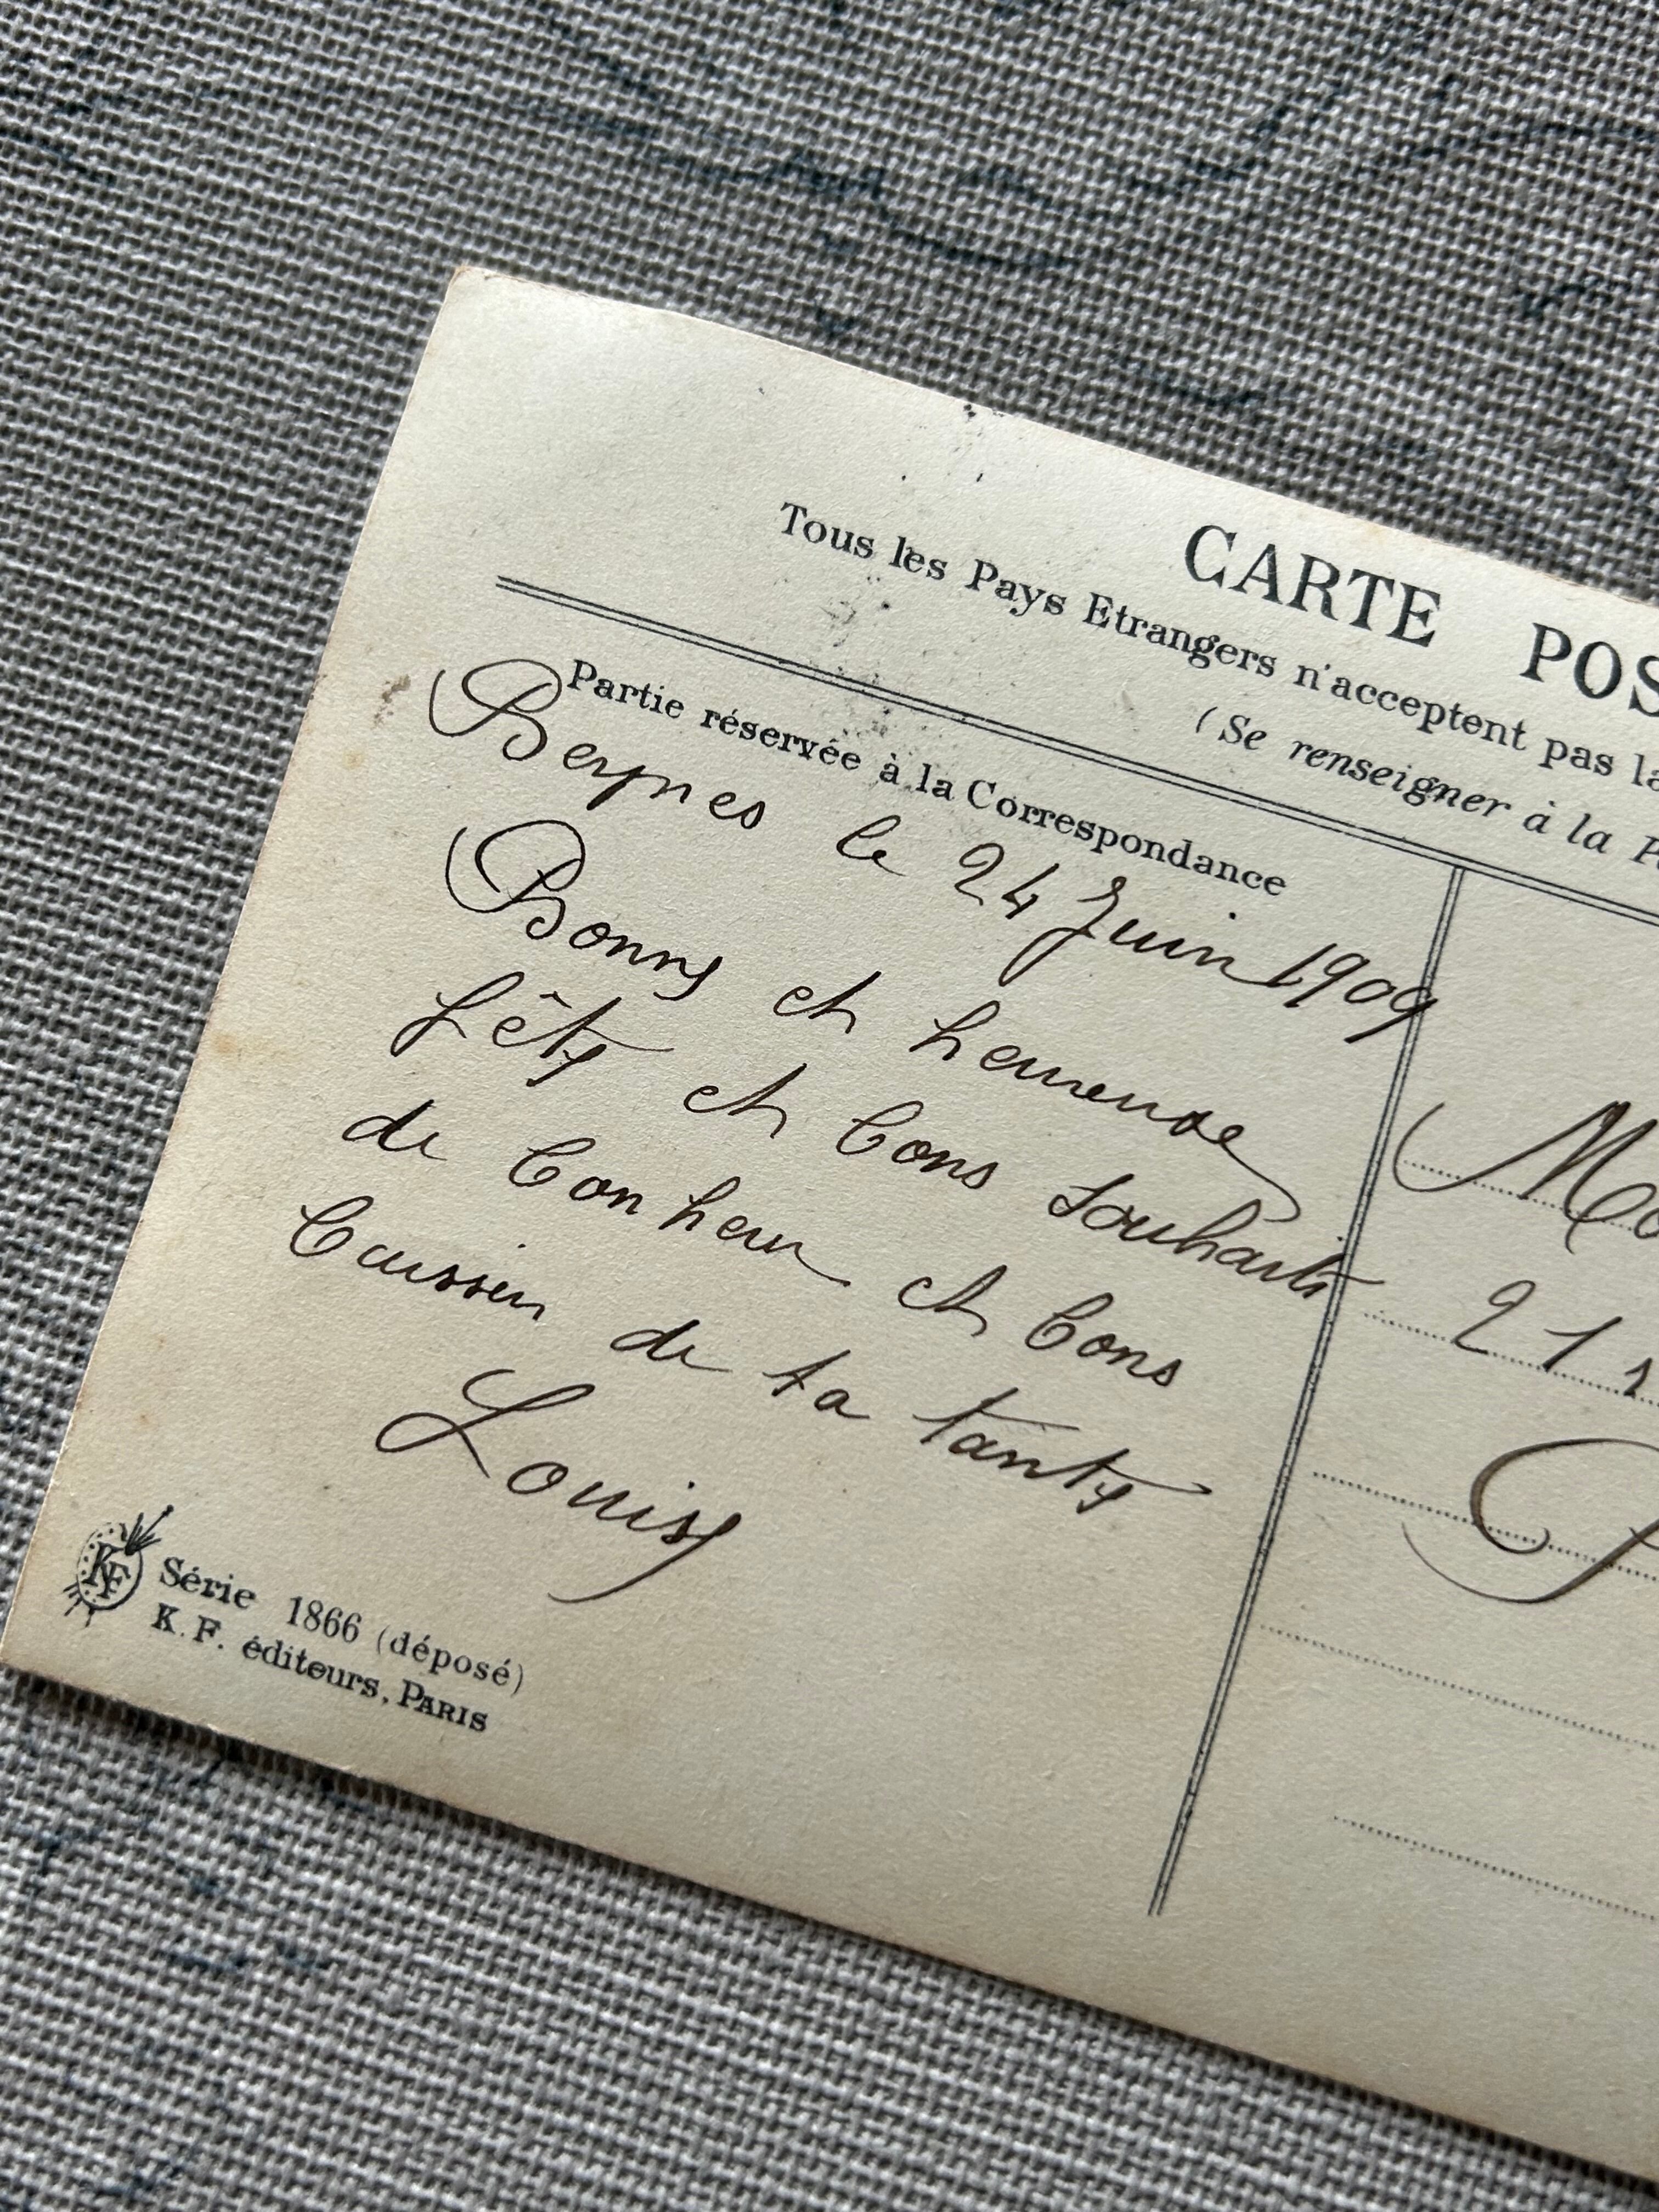 CARTE POS
Tous les Pays Etrangers n'acceptent pas la
(Se renseigner à la P
Partie réservée à la Correspondance
Beynes le 24 Juin 1909
Bonne et heureuse
fête et bons souhaits
de bonheur et bons
baisser de ta tante
Louise
M
21
P
KF
Série 1866 (déposé)
K. F. éditeurs, PARIS